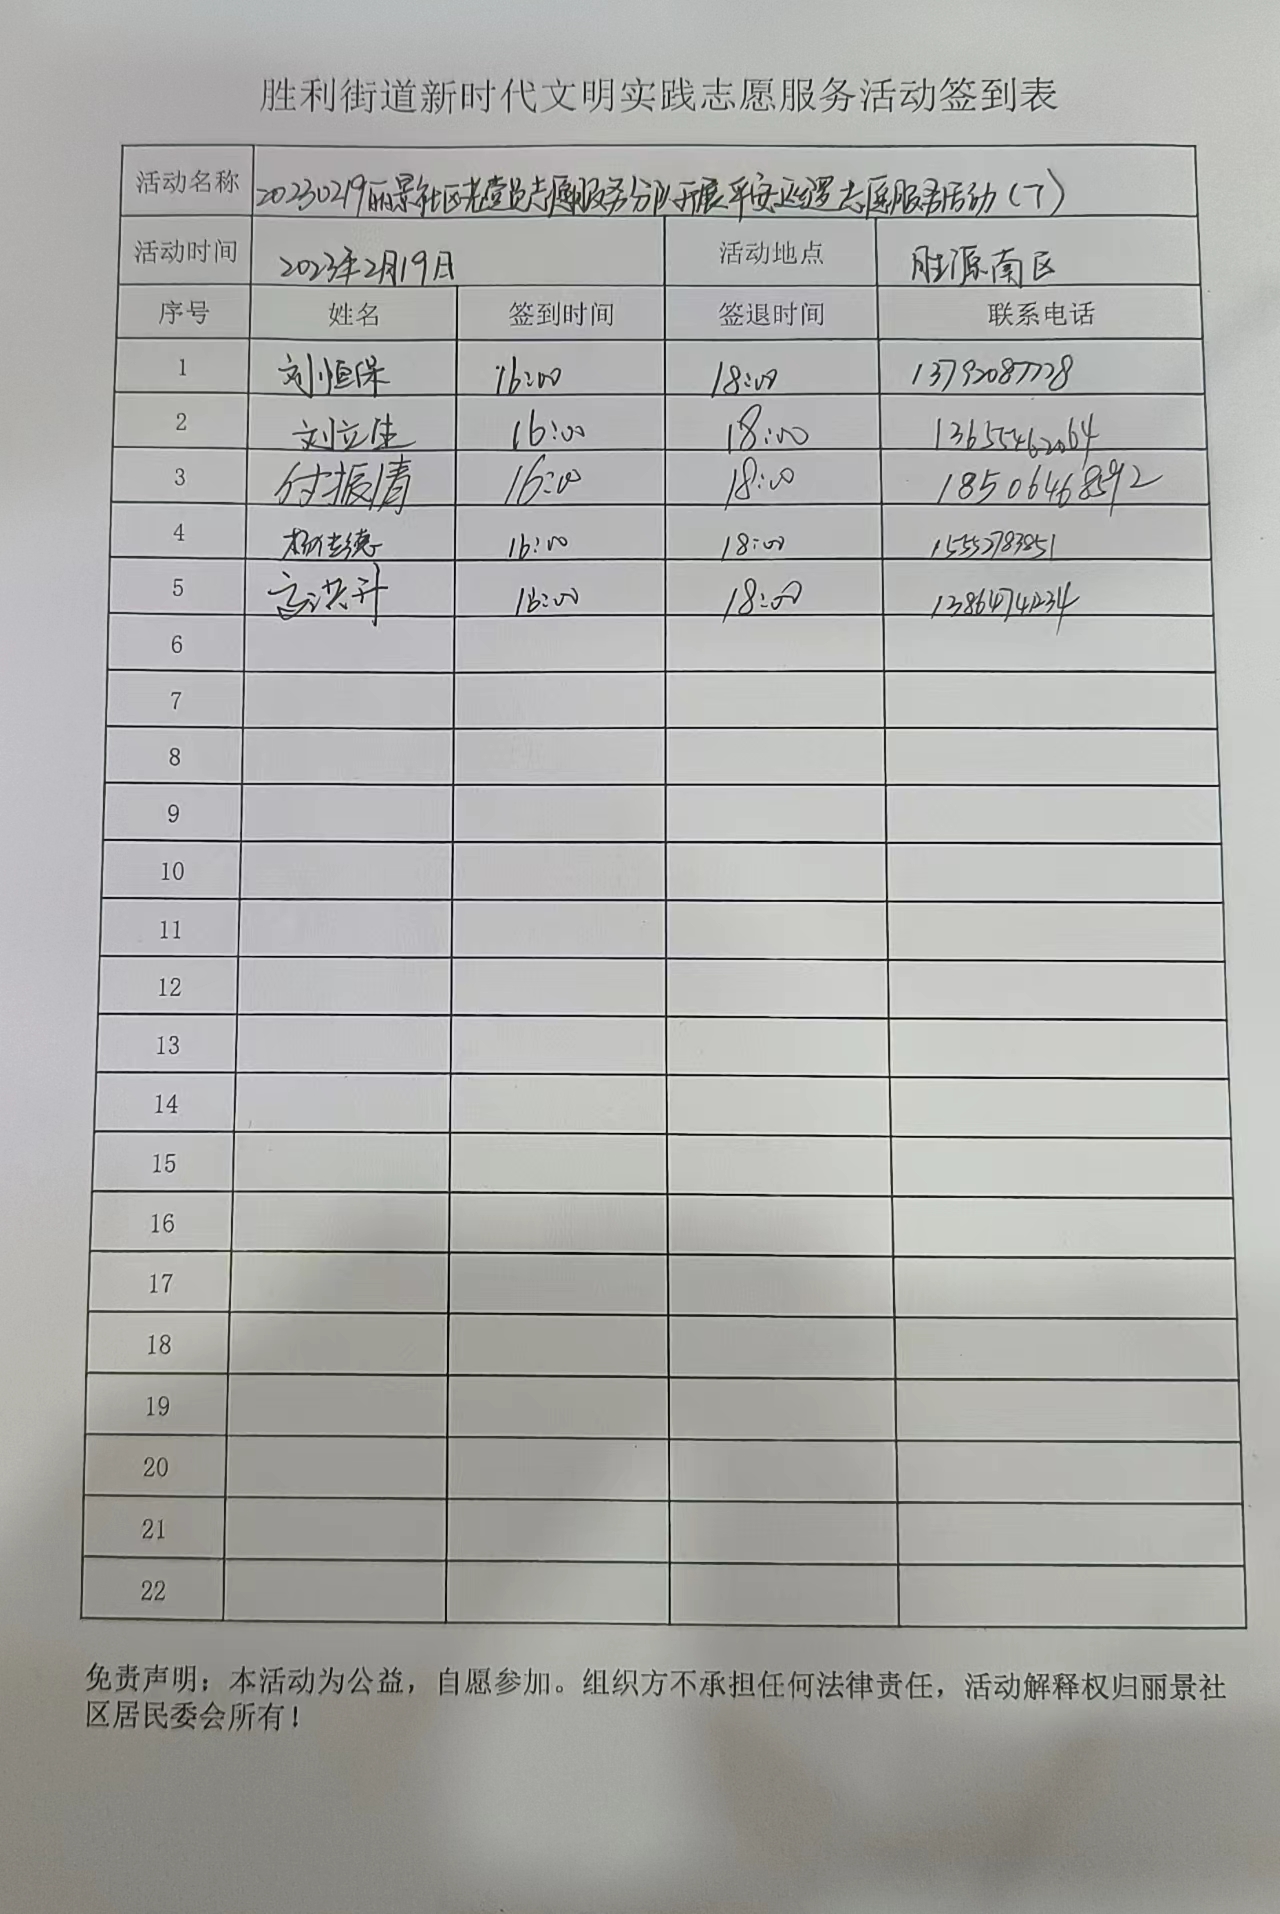 胜利街道新时代文明实践志愿服务活动签到表
活动名称 20230219丽景社区老党员志愿服务分队开展平安巡逻志愿服务活动(下)
活动时间 2023年2月19日 活动地点 胜源南区
序号 姓名 签到时间 签退时间 联系电话
1 刘恒保 16:00 18:00
2 刘立生 16:00 18:00 13655462064
3 付振清 16:00 18:00 18506468592
4 16:00 18:00 15552783851
5 高洪升 16:00 18:00
6
7
8
9
10
11
12
13
14
15
16
17
18
19
20
21
22
免责声明：本活动为公益，自愿参加。组织方不承担任何法律责任，活动解释权归丽景社
区居民委会所有！